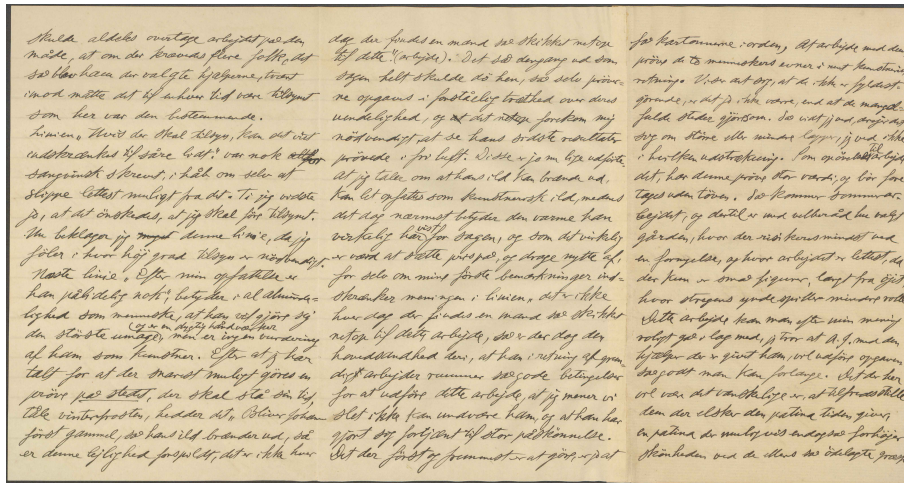 skulde aldeles overtage arbejdet paa den
måde, at om der krævedes flere folk, det
saa blev ham der valgte hjælperne, tvært
imod måtte det til enhver tid være tilsynet
som her var den bestemmende.
Linien „Hvis der skal tilsyn, kan det vist
indskrænkes til såre lidt" var nok
sangvinsk skrevet, i håb om selv at
slippe lettest muligt fra det. Ti jeg vidste
jo, at det önskedes, at jeg skal före tilsynet.
Nu beklager jeg denne linie, da jeg
föler i hvor höj grad tilsyn er nödvendigt.
Næste linie. „Efter min opfattelse er
han pålidelig nok", betyder i al alminde-
lighed som menneske, at han vil gjöre sig
den störste umage, (og er en dygtig håndværker
men er ingen vurdering
af ham som kunstner. Efter at jeg har
talt for at der snarest muligt göres en
pröve paa stedet, der skal stå sin tid,
tåle vinterfrosten, hedder det, „Bliver Johan
först gammel, saa hans ild brænder ud, saa
er denne lejlighed forspildt, det er ikke hver
dag der findes en mand saa skikket netop
til dette" (arbejde). Det saa dengang ud som
sagen helt skulde dö hen, saa selv pröver-
ne opgaves i forståelig træthed over deres
uendelighed, og det forekom mig
nödvendigt, at se hans sidste resultater
prövede i fri luft. Disse er jo nu lige udförte,
at jeg taler om at hans ild kan brænde ud,
kan let opfattes som kunstnerisk ild, medens
det dog nærmest betyder den varme han
virkelig har vist for sagen, og som det virkelig
er værd at sætte pris paa, og drage nytte af,
for selv om mine förste bemærkninger ind-
skrænker meningen i linien, „det er ikke
hver dag der findes en mand saa skikket
netop til dette arbejde, saa er der dog den
hovedsandhed deri, at han i retning af
arbejder rummer saa gode betingelser
for at udföre dette arbejde, at jeg mener vi
slet ikke kan undvære ham, og at han har
gjort sig fortjent til stor påskönnelse.
Det der först og fremmest er at göre, er jo at
faa kartonnerne i orden, At arbejde med den
pröve de to menneskers evner i ret kunstnerisk
retning. Viser det sig, at de ikke er fyldest-
görende, er det jo ikke værre, end at de mangel-
fulde steder gjöres om. Saa vidt jeg ved, drejer det
sig om större eller mindre lapper, jeg ved ikke
i hvilken udstrækning. Som til arbejde
det, har denne pröve stor værdi, og bör fore-
tages uden töven. Saa kommer sommerar-
bejdet, og dertil er med velberåd hu valgt
gården, hvor der risikeres mindst ved
en fornyelse, og hvor arbejdet er lettest, da
der kun er smaa figurer, langt fra öjet
hvor stregens ynde spiller mindre rolle
Dette arbejde kan man efter min mening
roligt gaa i lag med, jeg tror at A. J. med den
hjælper der er givet ham, vil udföre opgaven
saa godt man kan forlange. Det der her
vel var det vanskelige er, at tilfredsstille
dem der elsker den patina tiden giver,
en patina der muligvis endogsaa forhöjer
skönheden ved de ellers saa ödelagte